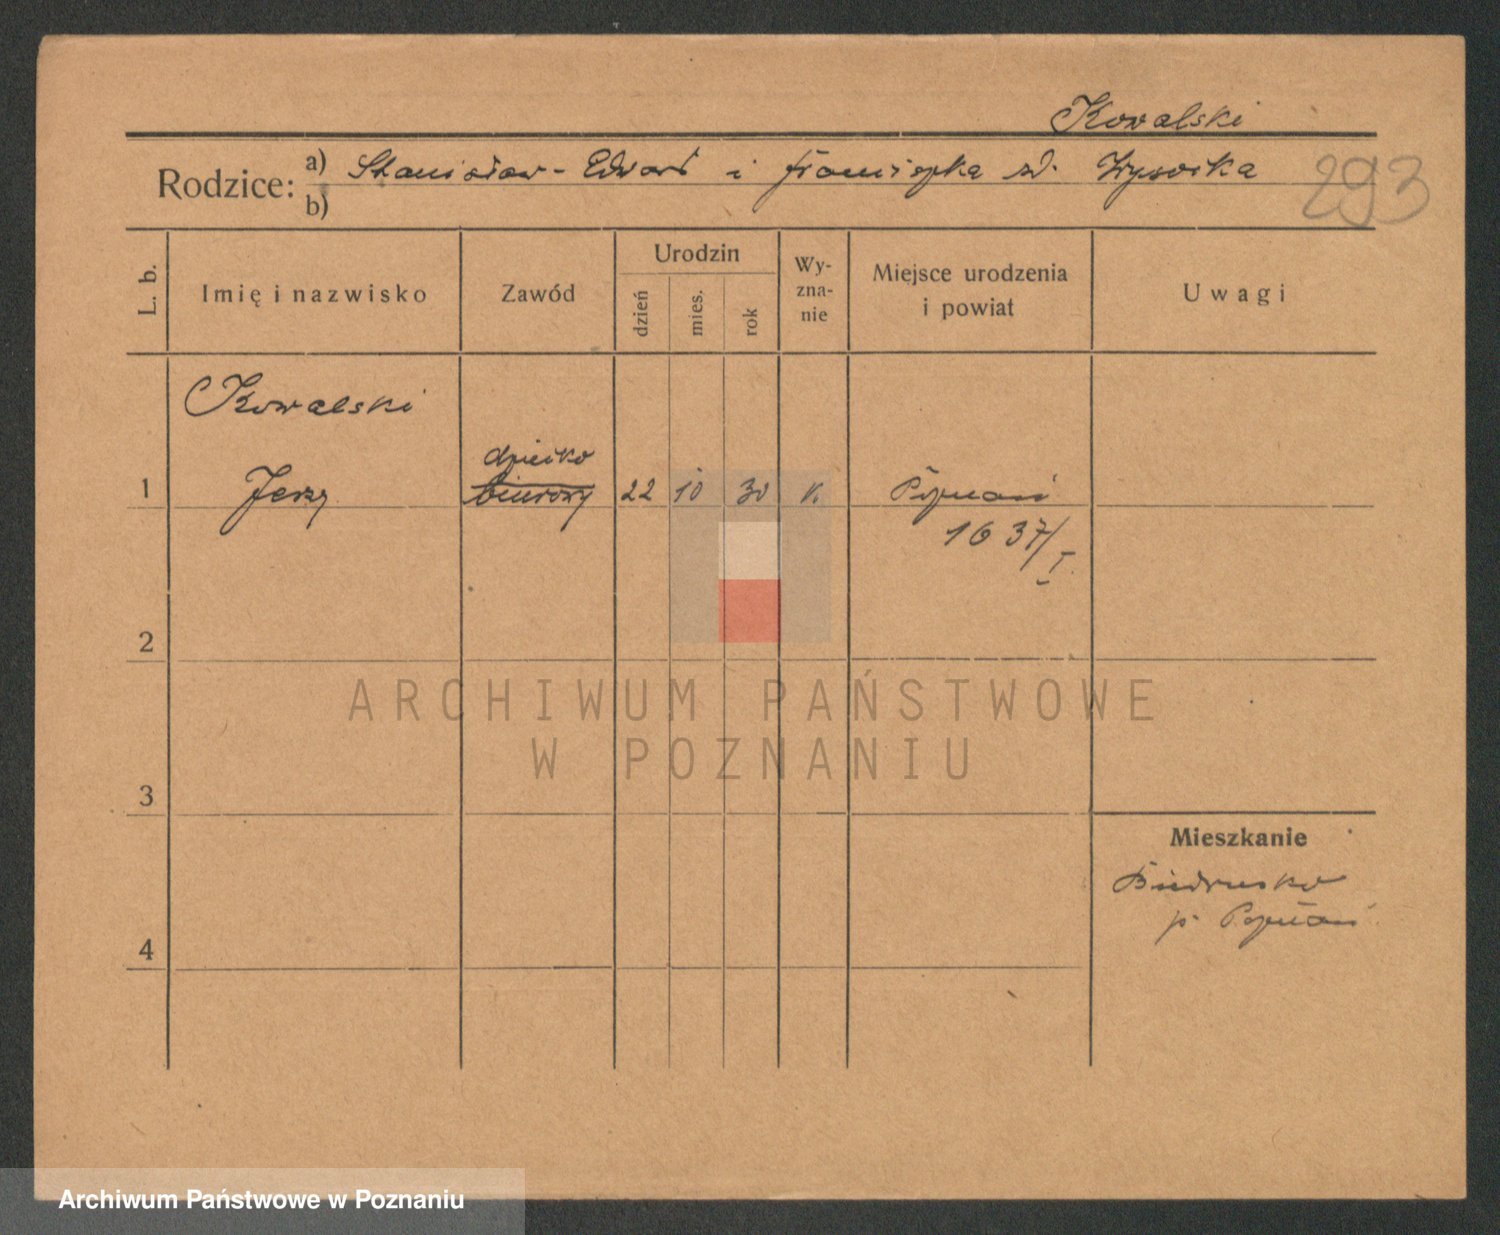 Kowalski
Rodzice: a) Stanisław-Edward i Franciszka zd. Wysocka
b)
293
L. b.
Imię i nazwisko
Zawód
Urodzin
dzień
mies.
rok
Wy-
zna-
nie
Miejsce urodzenia
i powiat
Uwagi
Kowalski
dziecko
1 Jerzy biurowy 22 10 30 k. Poznań
1637/I.
2
ARCHIWUM PAŃSTWOWE
W POZNANIU
3
Mieszkanie
Biedrusko
p. Poznań
4
Archiwum Państwowe w Poznaniu